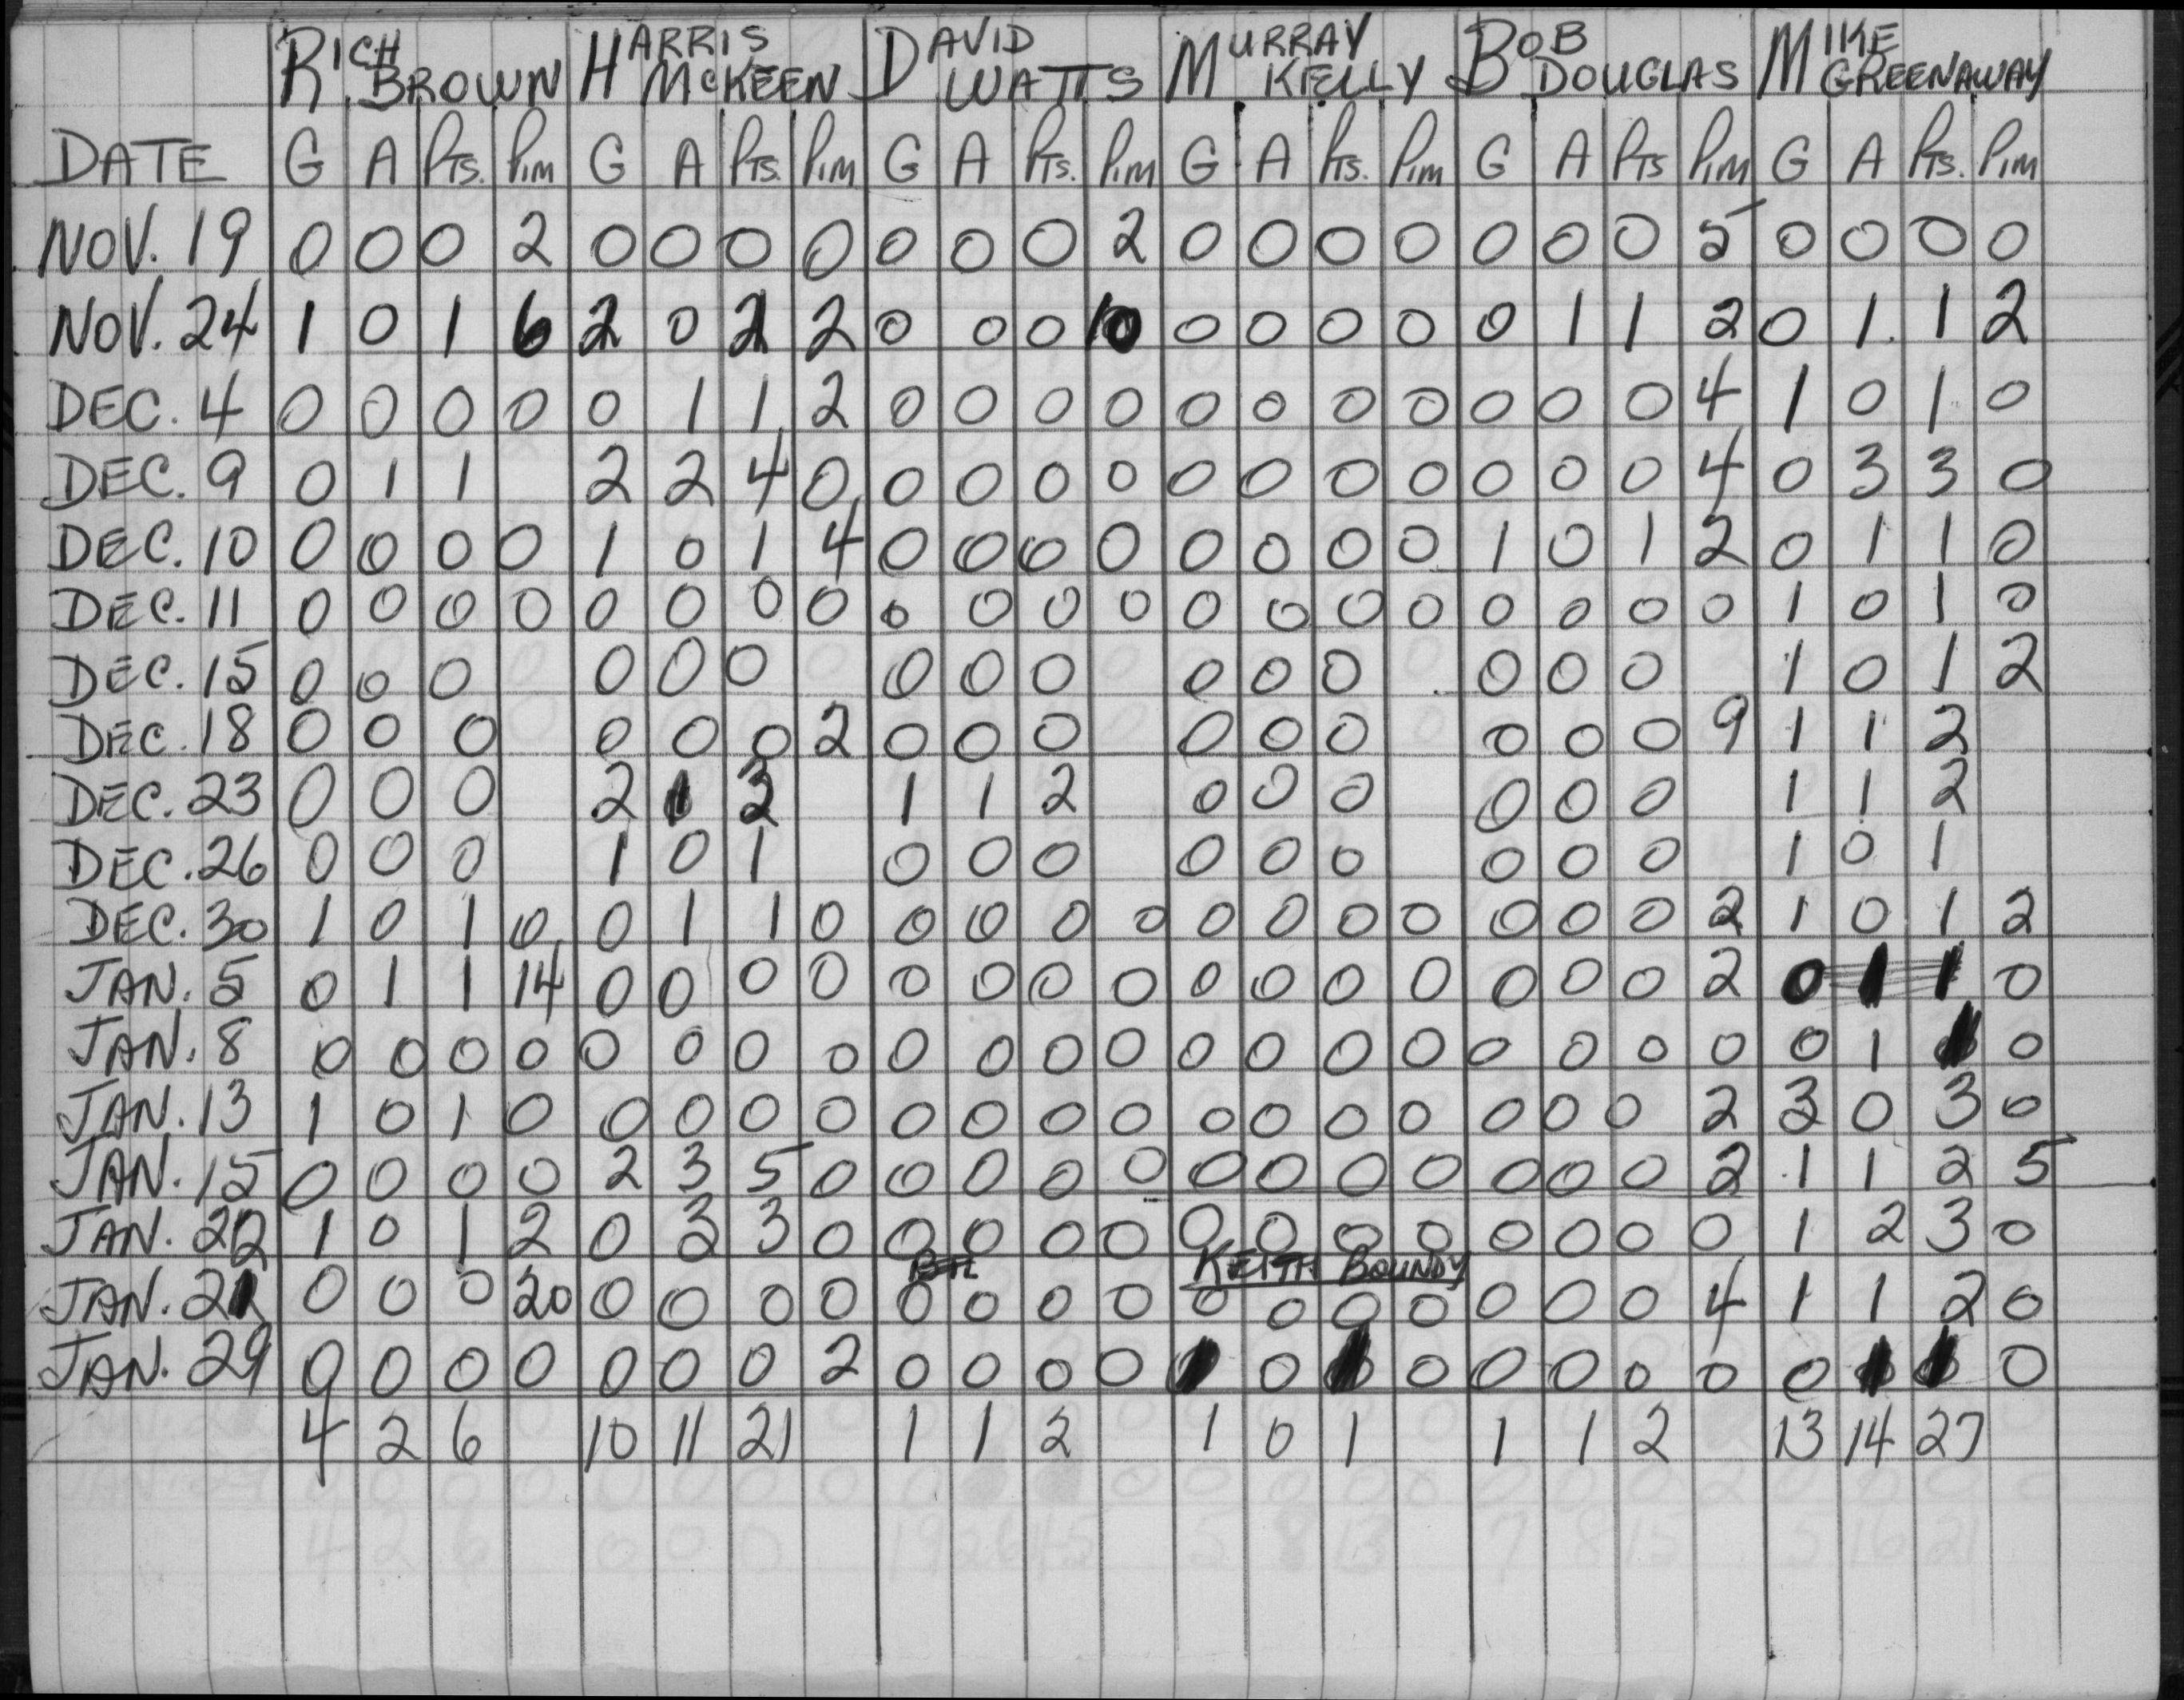 RICH BROWN HARRIS McKEEN DAVID WATTS MURRAY KIELLY BOB DOUGLAS MIKE GREENAWAY
DATE G A PTS. PIM G A PTS. PIM G A PTS. PIM G A PTS. PIM G A PTS PIM G A PTS. PIM
NOV. 19 0 0 0 2 0 0 0 0 0 0 0 2 0 0 0 0 0 0 0 5 0 0 0 0
NOV. 24 1 0 1 6 2 0 2 2 0 0 0 10 0 0 0 0 0 1 1 2 0 1 1 2
DEC. 4 0 0 0 0 0 1 1 2 0 0 0 0 0 0 0 0 0 0 0 4 1 0 1 0
DEC. 9 0 1 1 2 2 4 0 0 0 0 0 0 0 0 0 0 0 0 4 0 3 3 0
DEC. 10 0 0 0 0 1 0 1 4 0 0 0 0 0 0 0 0 1 0 1 2 0 1 1 0
DEC. 11 0 0 0 0 0 0 0 0 0 0 0 0 0 0 0 0 0 0 0 0 1 0 1 0
DEC. 15 0 0 0 0 0 0 0 0 0 0 0 0 0 0 0 1 0 1 2
DEC. 18 0 0 0 0 0 0 2 0 0 0 0 0 0 0 0 0 9 1 1 2
DEC. 23 0 0 0 2 1 3 1 1 2 0 0 0 0 0 0 1 1 2
DEC. 26 0 0 0 1 0 1 0 0 0 0 0 0 0 0 0 1 0 1
DEC. 30 1 0 1 0 0 1 1 0 0 0 0 0 0 0 0 0 0 0 0 2 1 0 1 2
JAN. 5 0 1 1 14 0 0 0 0 0 0 0 0 0 0 0 0 0 0 0 2 0 1 1 0
JAN. 8 0 0 0 0 0 0 0 0 0 0 0 0 0 0 0 0 0 0 0 0 0 1 1 0
JAN. 13 1 0 1 0 0 0 0 0 0 0 0 0 0 0 0 0 0 0 0 2 3 0 3 0
JAN. 15 0 0 0 0 2 3 5 0 0 0 0 0 0 0 0 0 0 0 0 2 1 1 2 5
JAN. 22 1 0 1 2 0 3 3 0 0 0 0 0 0 0 0 0 0 0 0 0 1 2 3 0
KEITH BOUNDY
JAN. 21 0 0 0 20 0 0 0 0 0 0 0 0 0 0 0 0 0 0 0 4 1 1 2 0
JAN. 29 0 0 0 0 0 0 0 2 0 0 0 0 1 0 1 0 0 0 0 0 0 1 1 0
4 2 6 10 11 21 1 1 2 1 0 1 1 1 2 13 14 27